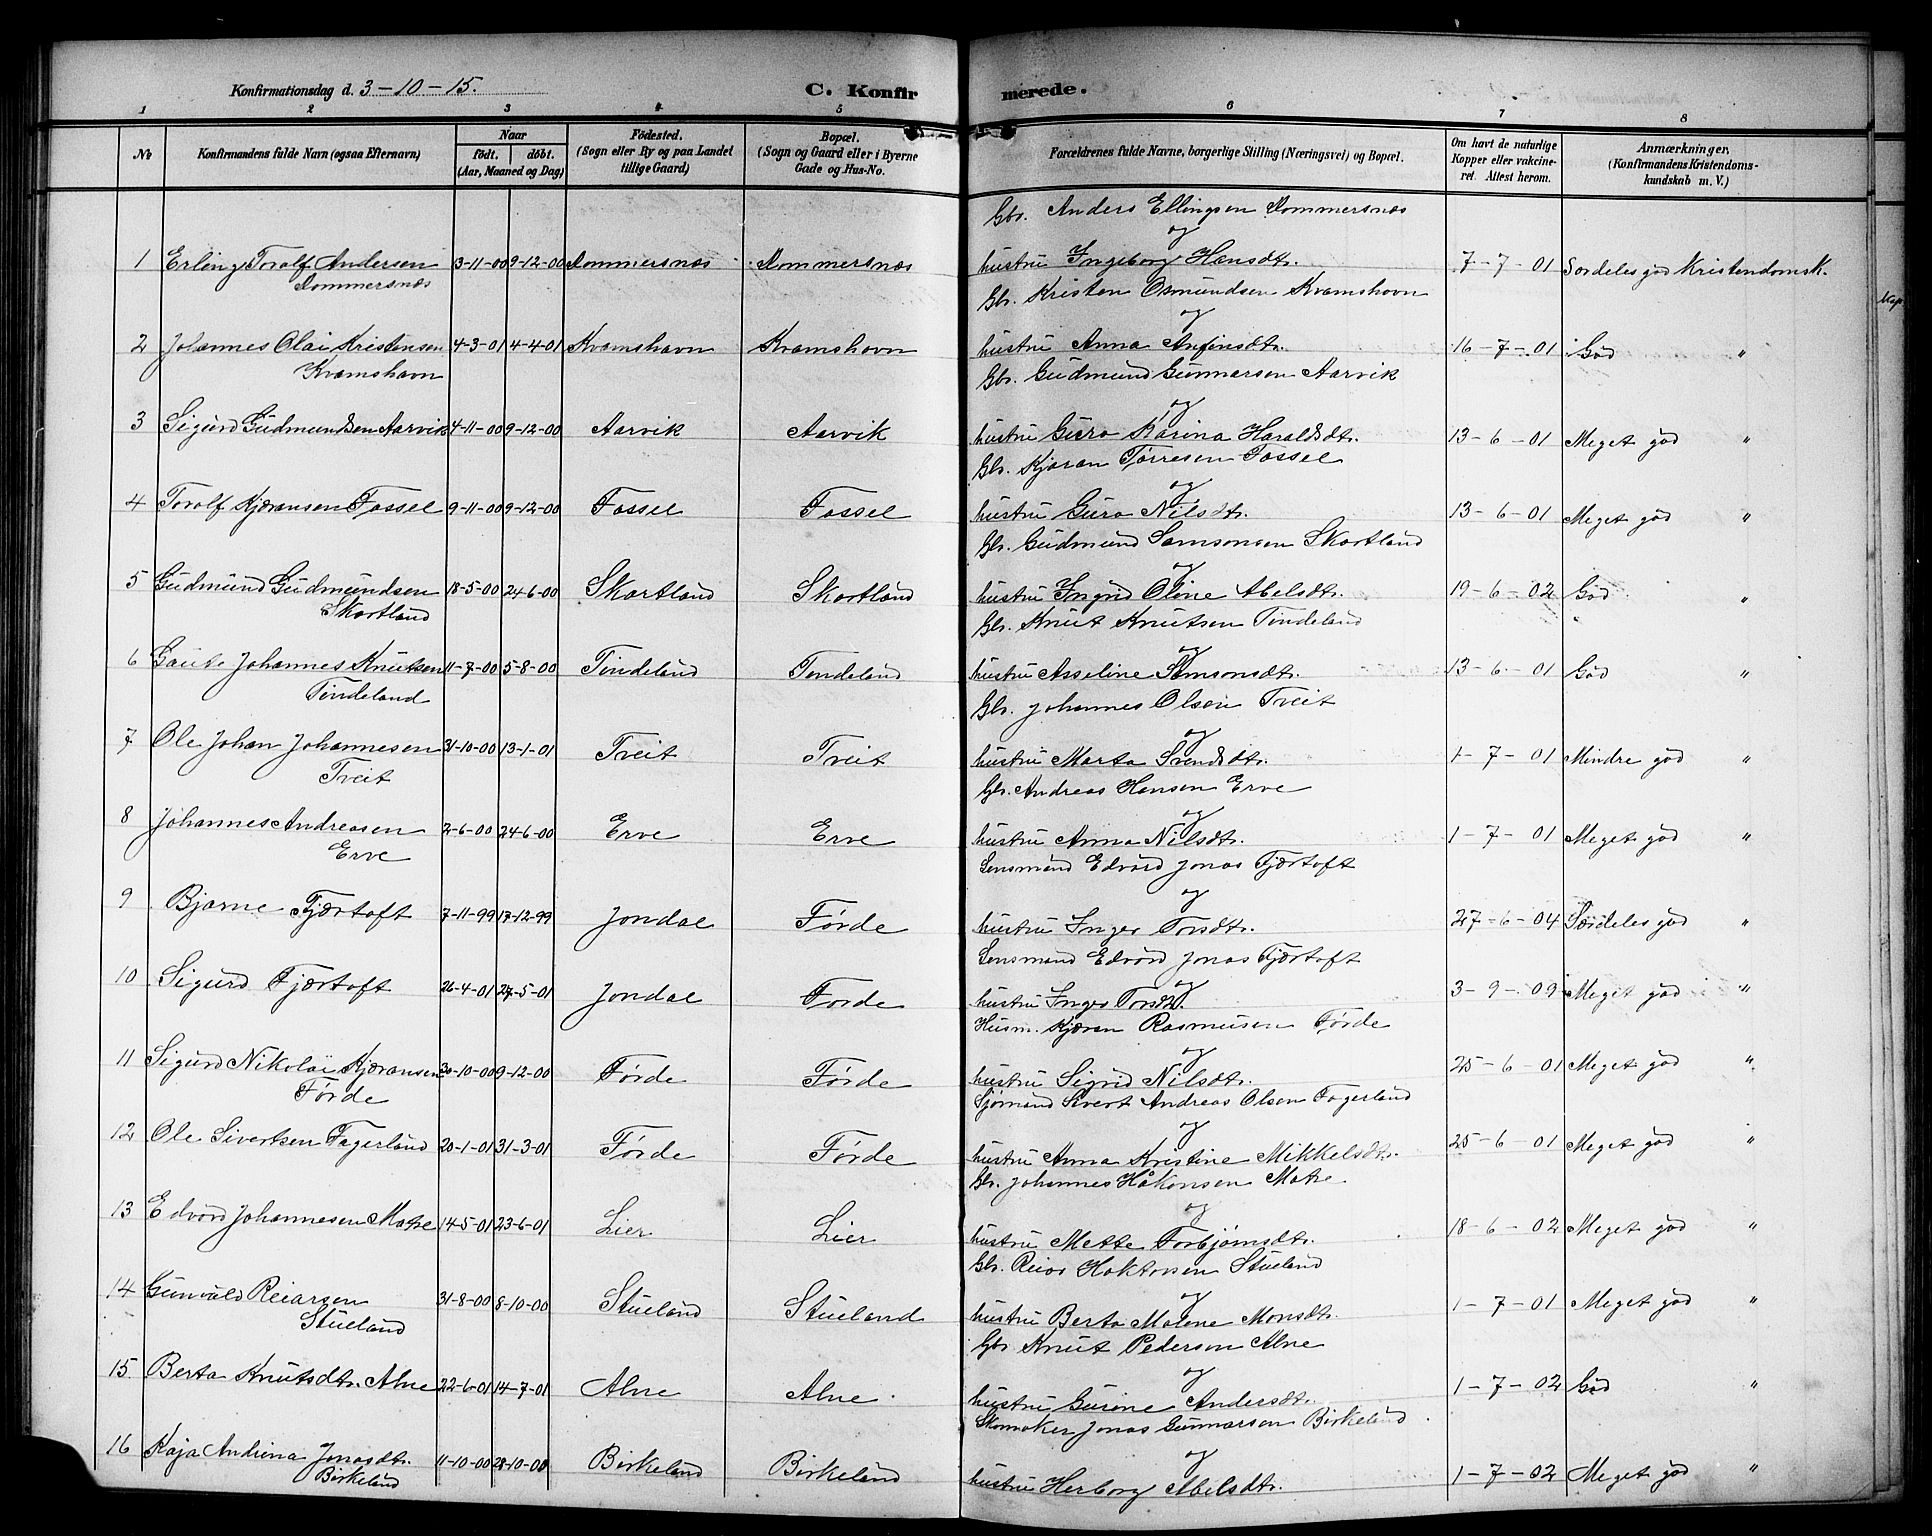 Konfirmationsdag d. 3-10-15.
C. Konfirmerede.
1 2 3 4 5 6 7 8
No
Konfirmandens fulde Navn (ogsaa Efternavn)
Naar
født. døbt.
(Aar, Maaned og Dag)
Fødested.
(Sogn eller By og paa Landet
tillige Gaard)
Bopæl.
(Sogn og Gaard eller i Byerne
Gade og Hus-No.
Forældrenes fulde Navne, borgerlige Stilling (Næringsvei) og Bopæl.
Om havt de naturlige
Kopper eller vakcine-
ret. Attest herom.
Anmærkninger,
(Konfirmandens Kristendoms-
kundskab m. V.)
Gbr. Anders Ellingsen Rommersnæs
og
1 Erling Toralf Andersen 3-11-00 9-12-00 Rommersnæs Rommersnæs hustru Ingeborg Hansdtr. 7-7-01 Særdeles god Kristendomsk.
Rommersnæs
Gbr. Kristen Osmundsen Kvamshavn
og
2 Johannes Olai Kristensen 4-3-01 4-4-01 Kvamshavn Kvamshavn hustru Anna Anfinsdtr. 16-7-01 God "
Kvamshavn
Gbr. Gudmund Gunnarsen Aarvik
og
3 Sigurd Gudmundsen Aarvik 4-11-00 9-12-00 Aarvik Aarvik hustru Guro Karina Haraldsdtr. 13-6-01 Meget god "
Gbr. Kjæran Tørresen Fossel
og
4 Toralf Kjæransen Fossel 9-11-00 9-12-00 Fossel Fossel hustru Guro Nilsdtr. 13-6-01 Meget god "
Gbr. Gudmund Samsonsen Skartland
og
5 Gudmund Gudmundsen 18-5-00 24-6-00 Skartland Skartland hustru Ingrid Oline Abelsdtr. 19-6-02 God "
Skartland
Gbr. Knut Knutsen Tindeland
og
6 Gaute Johannes Knutsen 11-7-00 5-8-00 Tindeland Tindeland hustru Asseline Samsonsdtr. 13-6-01 God "
Tindeland
Gbr. Johannes Olsen Tveit
og
7 Ole Johan Johannesen 31-10-00 13-1-01 Tveit Tveit hustru Marta Svendsdtr. 1-7-01 Mindre god "
Tveit
Gbr. Andreas Hansen Erve
og
8 Johannes Andreasen 2-6-00 24-6-00 Erve Erve hustru Anna Nilsdtr. 1-7-01 Meget god "
Erve
Lensmand Edvard Jonas Fjærtoft
og
9 Bjarne Fjærtoft 7-11-99 17-12-99 Jondal Førde hustru Inger Torsdtr. 27-6-04 Særdeles god "
Lensmand Edvard Jonas Fjærtoft
og
10 Sigurd Fjærtoft 26-4-01 27-5-01 Jondal Førde hustru Inger Torsdtr. 3-9-09 Meget god "
Husm. Kjæran Rasmusen Førde
og
11 Sigurd Nikolai Kjæransen 30-10-00 9-12-00 Førde Førde hustru Sigrid Nilsdtr. 25-6-01 Meget god "
Førde
Sjømand Sivert Andreas Olsen Fagerland
og
12 Ole Sivertsen Fagerland 20-1-01 31-3-01 Førde Førde hustru Anna Kristine Mikkelsdtr. 25-6-01 Meget god "
Gbr. Johannes Håkonsen Matre
og
13 Edvard Johannesen Matre 14-5-01 23-6-01 Lier Lier hustru Mette Torbjørnsdtr. 18-6-02 Meget god "
Gbr. Reiar Haktorsen Stueland
og
14 Gunvald Reiarsen 31-8-00 8-10-00 Stueland Stueland hustru Berta Malene Monsdtr. 1-7-01 Meget god "
Stueland
Gbr Knut Pedersen Alne
og
15 Berta Knutsdtr. Alne 22-6-01 14-7-01 Alne Alne hustru Gurine Andersdtr. 1-7-02 God "
Skomaker Jonas Gunnarsen Birkeland
og
16 Kaja Andrina Jonasdtr. 11-10-00 28-10-00 Birkeland Birkeland hustru Herborg Abelsdtr. 1-7-02 Meget god "
Birkeland